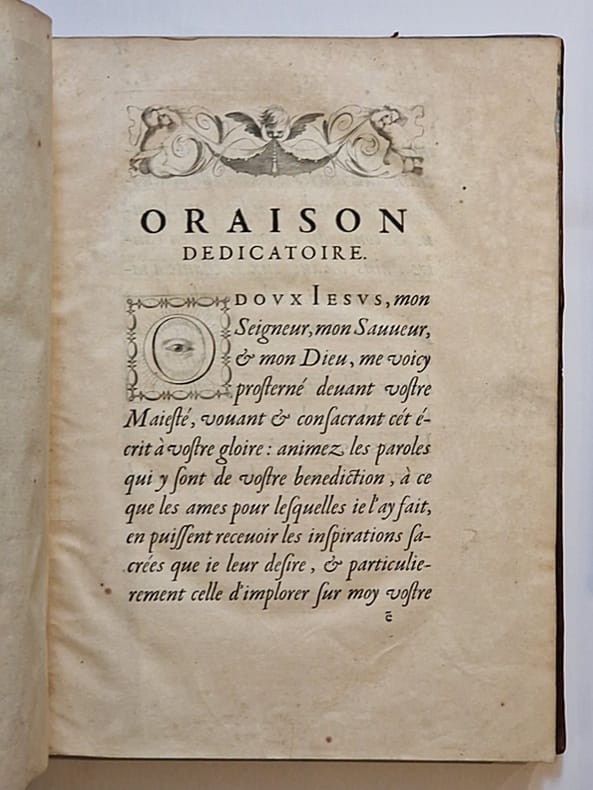 ORAISON
DEDICATOIRE.
O DOVX IESVS, mon
Seigneur, mon Sauueur,
& mon Dieu, me voicy
proſterné deuant voſtre
Maieſté, vouant & conſacrant cét é-
crit à voſtre gloire : animez les paroles
qui y ſont de voſtre benediction, à ce
que les ames pour leſquelles ie l'ay fait,
en puiſſent receuoir les inſpirations ſa-
crées que ie leur deſire, & particulie-
rement celle d'implorer ſur moy voſtre
c̄